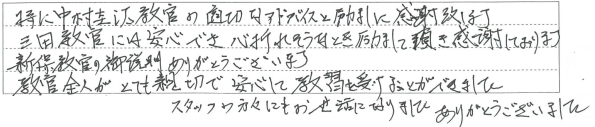 特に中村圭汰教官の適切なアドバイスと励ましに感謝致します
三田教官には安心でき心折れそうなとき励まして頂き感謝しております
新保教官の御説明ありがとうございます
教官全人がとても親切で安心して教習を受けることができました
スタッフの方々にもお世話になりました ありがとうございました